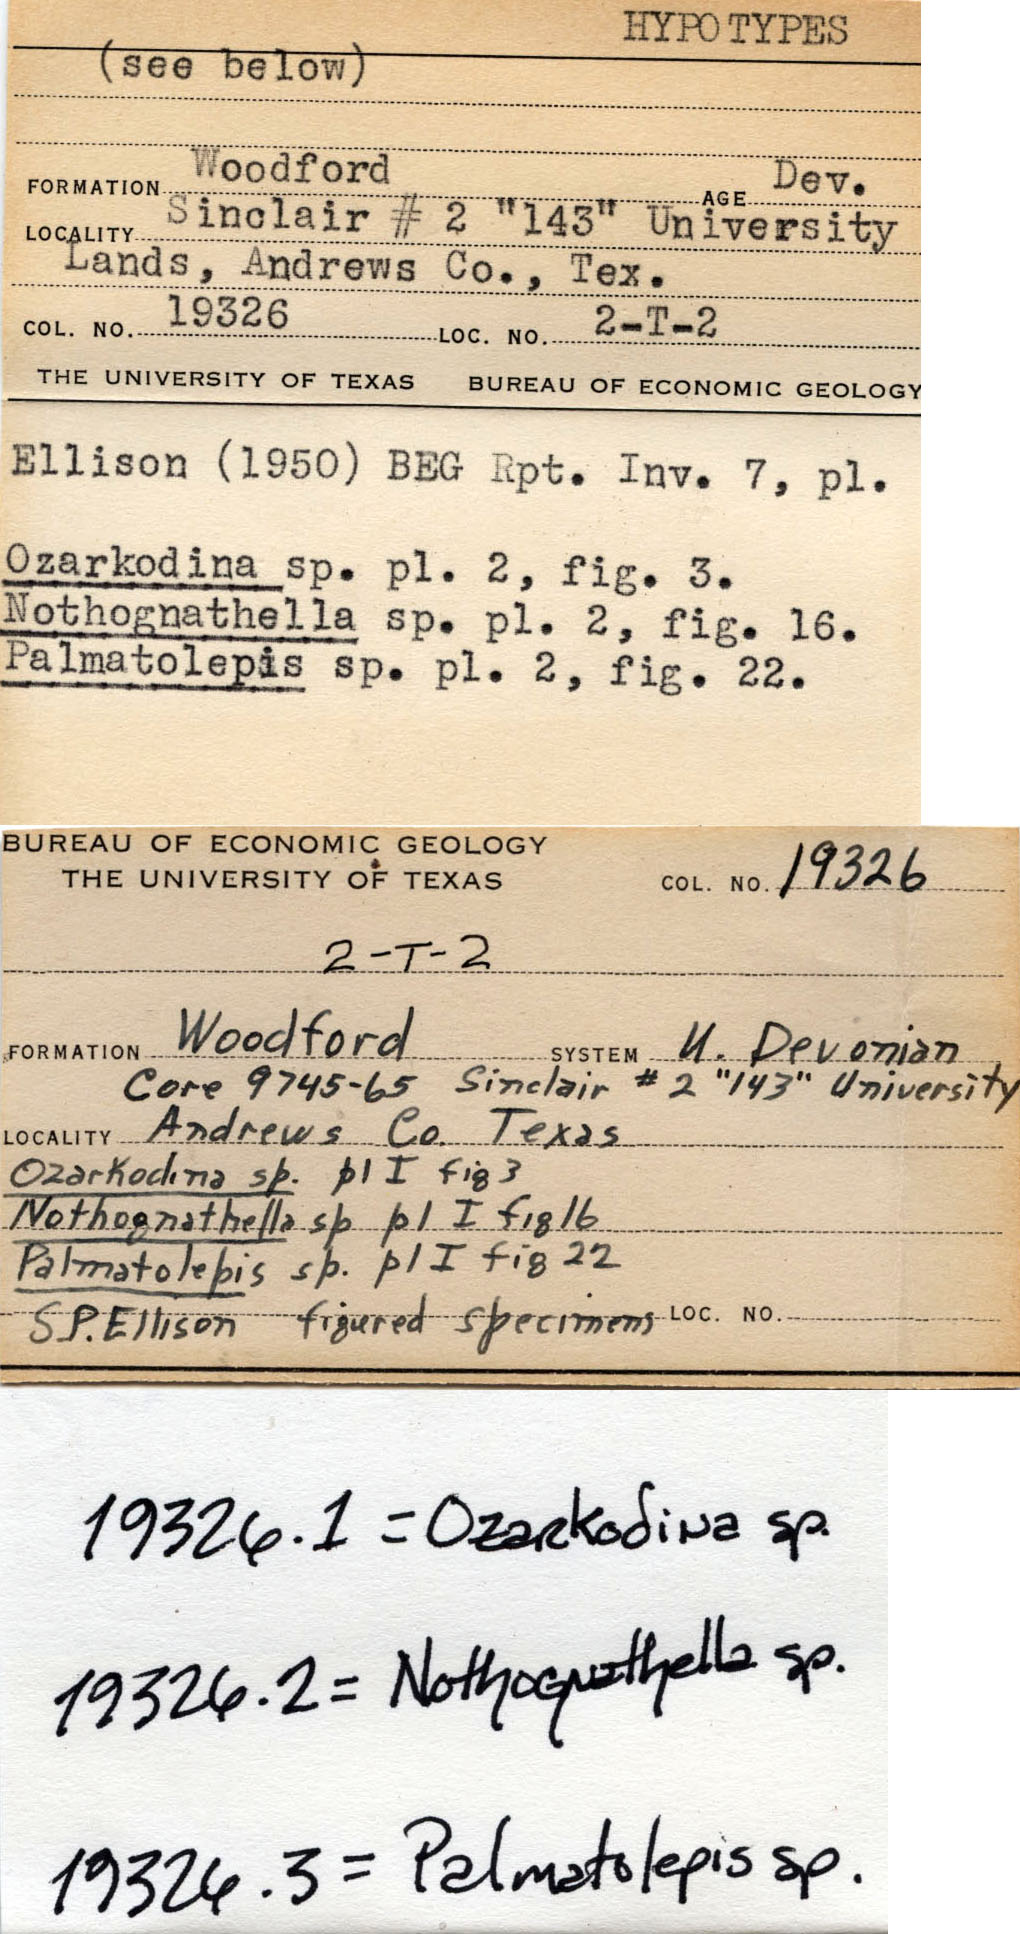 HYPOTYPES
(see below)
FORMATION Woodford AGE Dev.
LOCALITY Sinclair # 2 "143" University
Lands, Andrews Co., Tex.
COL. NO. 19326 LOC. NO. 2-T-2
THE UNIVERSITY OF TEXAS BUREAU OF ECONOMIC GEOLOGY
Ellison (1950) BEG Rpt. Inv. 7, pl.
Ozarkodina sp. pl. 2, fig. 3.
Nothognathella sp. pl. 2, fig. 16.
Palmatolepis sp. pl. 2, fig. 22.
BUREAU OF ECONOMIC GEOLOGY
THE UNIVERSITY OF TEXAS COL. NO. 19326
2-T-2
FORMATION Woodford SYSTEM U. Devonian
Core 9745-65 Sinclair # 2 "143" University
LOCALITY Andrews Co. Texas
Ozarkodina sp. pl I fig 3
Nothognathella sp pl I fig 16
Palmatolepis sp. pl I fig 22
S.P. Ellison figured specimens LOC. NO.
19326.1 = Ozarkodina sp.
19326.2 = Nothognathella sp.
19326.3 = Palmatolepis sp.